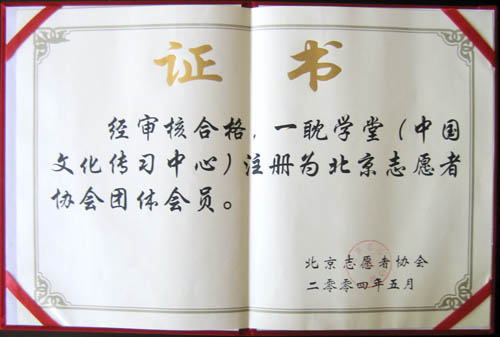 证 书
经审核合格，一耽学堂（中国
文化传习中心）注册为北京志愿者
协会团体会员。
北京志愿者协会
二〇〇四年五月